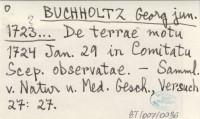 BUCHHOLTZ Georg jun.
1723... De terrae motu
1724 Jan. 29 in Comitatu
Scep. observatae. - Samml.
v. Natur u. Med. Gesch., Versuch
27: 27.
BT/007/0036